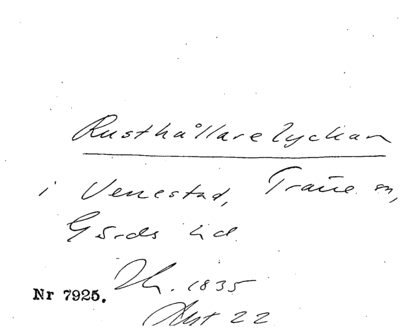 Rusthållarelyckan
i Venestad, Träne sn,
Gärds hd
1835
Nr 7925.
Akt 22